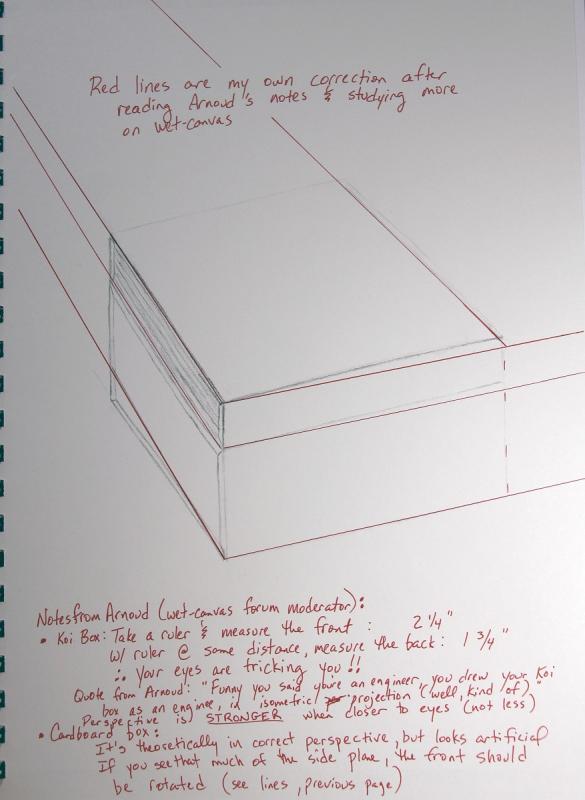 Red lines are my own correction after
reading Arnoud's notes & studying more
on wet-canvas
Notes from Arnoud (wet-canvas forum moderator):
• Koi Box: Take a ruler & measure the front : 2 1/4"
w/ ruler @ some distance, measure the back: 1 3/4"
∴ Your eyes are tricking you!!
Quote from Arnoud: "Funny you said you're an engineer, you drew your Koi
box as an engineer, in isometric projection (well, kind of)."
Perspective is STRONGER when closer to eyes (not less)
• Cardboard box:
It's theoretically in correct perspective, but looks artificial
If you see that much of the side plane, the front should
be rotated (see lines, previous page)